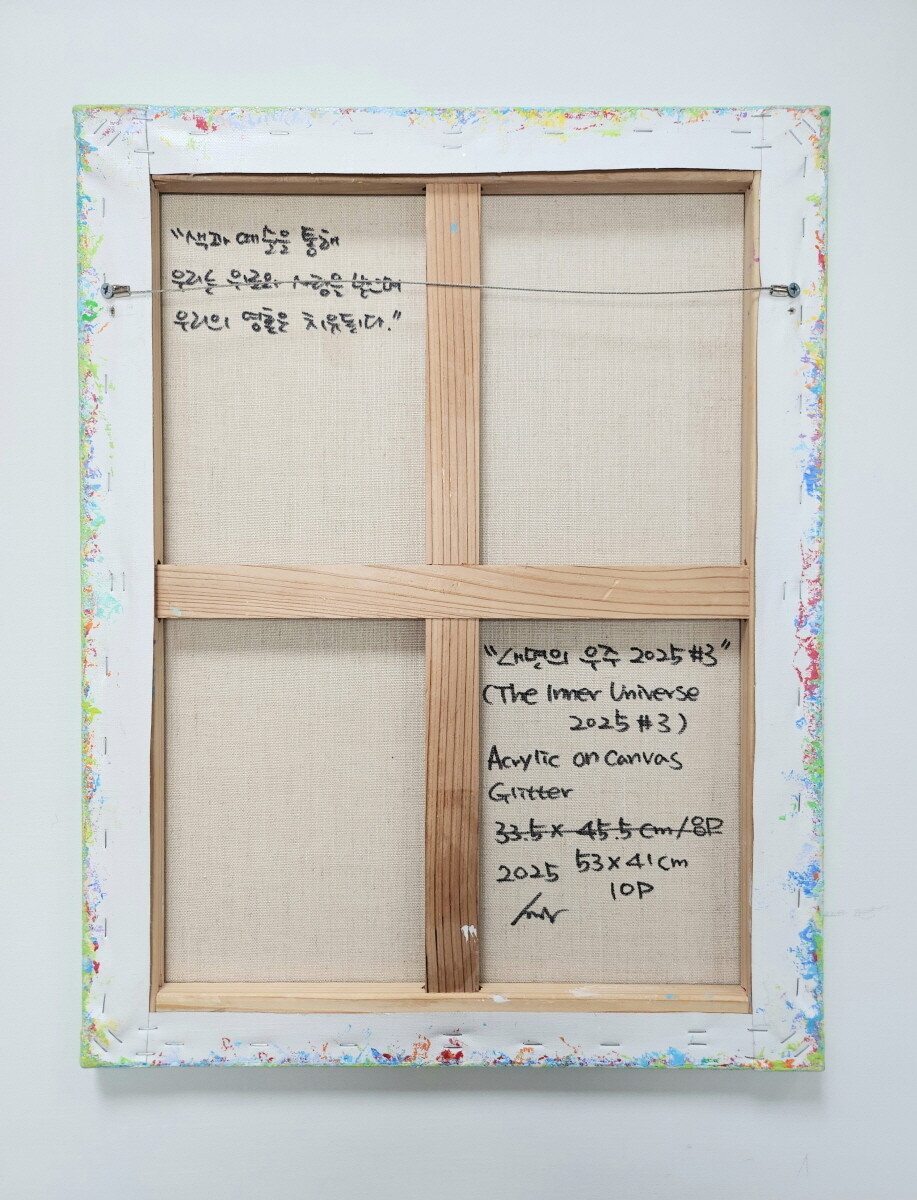 "색과 예술을 통해
우리는 위로와 사랑을 받으며
우리의 영혼은 치유된다."
"내면의 우주 2025 #3"
(The Inner Universe
2025 #3)
Acrylic on Canvas
Glitter
33.5 x 45.5 cm / 8P
2025 53 x 41 cm
10P